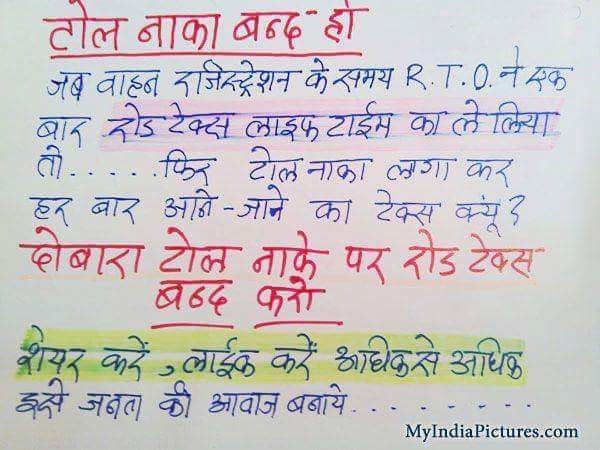 टोल नाका बन्द हो
जब वाहन रजिस्ट्रेशन के समय R.T.O. ने एक
बार रोड टेक्स लाइफ टाईम का ले लिया
तो.....फिर टोल नाका लगा कर
हर बार आने-जाने का टेक्स क्यूं?
दोबारा टोल नाके पर रोड टेक्स
बन्द करो
शेयर करें, लाईक करें अधिक से अधिक
इसे जनता की आवाज बनाये..........
MyIndiaPictures.com